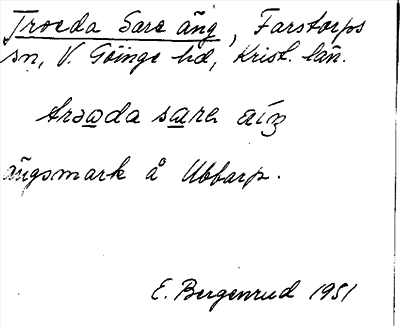 Troeda Sare äng, Farstorps
sn, V. Göinge hd, Krist. län.
trɔɷda sɑrɛ äiŋ
ängsmark å Ubbarp.
E. Bergenrud 1951